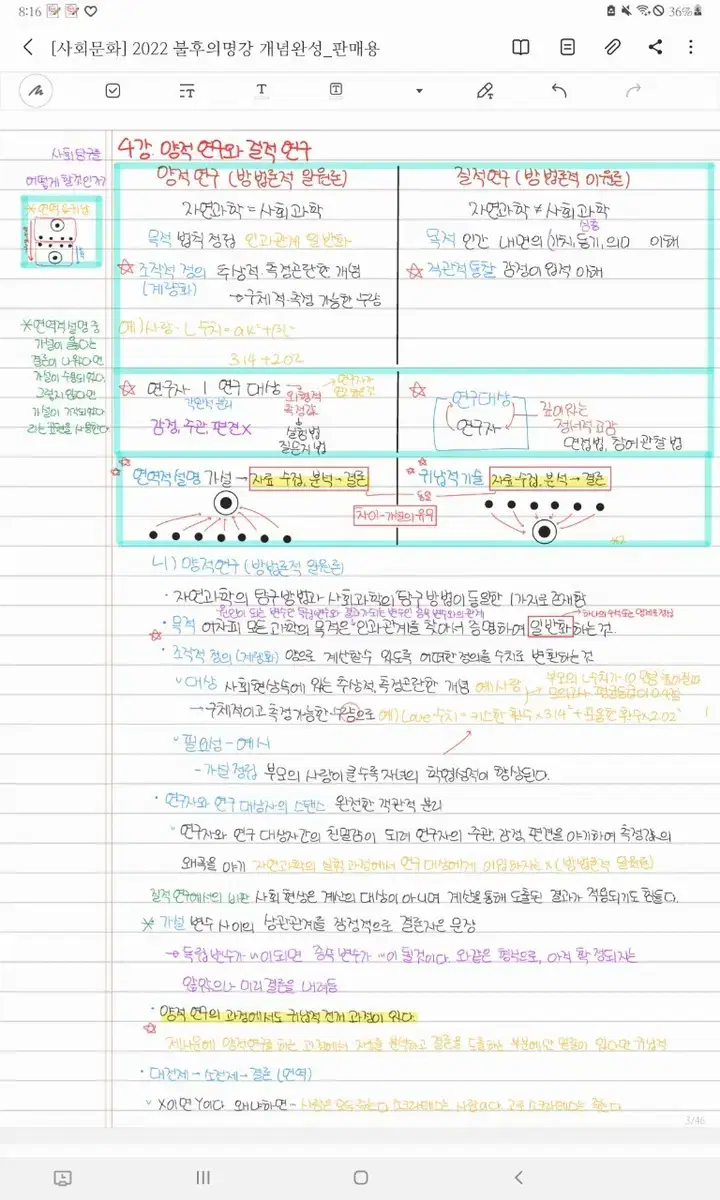 8:16
36%
[사회문화] 2022 불후의명강 개념완성_판매용
사회탐구를
어떻게 할것인가?
4강. 양적 연구와 질적 연구
양적 연구 (방법론적 일원론)
질적연구 (방법론적 이원론)
자연과학 = 사회과학
자연과학 ≠ 사회과학
목적 법칙 정립 인과관계 일반화
심층
목적 인간 내면의 (가치, 동기, 의미) 이해
☆ 조작적 정의 추상적. 측정곤란한 개념
(계량화)
→구체적·측정 가능한 수량
☆ 직관적통찰 감정이입적 이해
3.14 + 2.02
※연역적설명 중
가설이 옳다는
결론이 나왔다면
가설이 수용되었다.
그렇지 않다면
가설이 기각되었다
라는 표현을 사용한다
☆ 연구자 | 연구 대상
감정, 주관, 편견 X
계량적
측정값
실험법
질문지법
☆ 연구대상
연구자
깊이있는
정서적 교감
면접법, 참여관찰법
연역적설명 가설 → 자료 수집, 분석 → 결론
귀납적 기술 자료 수집, 분석 → 결론
동일
차이-가설의 유무
나) 양적연구 (방법론적 일원론)
· 자연과학의 탐구방법과 사회과학의 탐구 방법이 동일한 1가지로 존재함
원인이 되는 변수인 독립변수와 결과가 되는 변수인 종속 변수와의 관계
· 목적 어차피 모든 과학의 목적은 인과관계를 찾아서 증명하여 일반화하는 것.
· 조작적 정의 (계량화) 양으로 계산할수 있도록 어떠한 정의를 수치로 변환하는것
대상 사회현상속에 있는 추상적, 측정곤란한 개념 예) 사랑
→구체적이고 측정가능한 수량으로 예) Love 수치 = 키스한 횟수 x 3.14 + 포옹한 횟수 x 2.02
필요성 - 예시
- 가설 정립 부모의 사랑이 클수록 자녀의 학업성적이 향상된다.
· 연구자와 연구 대상자의 스탠스 완전한 객관적 분리
연구자와 연구 대상자간의 친밀감이 되려 연구자의 주관, 감정, 편견을 야기하여 측정값의
왜곡을 야기 자연과학의 실험 과정에서 연구 대상에게 이입하지는 X (방법론적 일원론)
질적 연구에서의 비판 사회 현상은 계산의 대상이 아니며 계산을 통해 도출된 결과가 적용되기도 힘들다.
※ 가설 변수 사이의 상관관계를 잠정적으로 결론지은 문장
→ 독립변수가 ~이되면 종속 변수가 ~이 될것이다. 와같은 형식으로, 아직 확정되지는
않았으나 미리 결론을 내려둠
· 양적 연구의 과정에서도 귀납적 전개 과정이 있다.
· 대전제 → 소전제 → 결론 (연역)
X이면 Y이다 왜냐하면 - 사람은 모두 죽는다. 소크라테스는 사람이다. 고로 소크라테스는 죽는다.
3/46